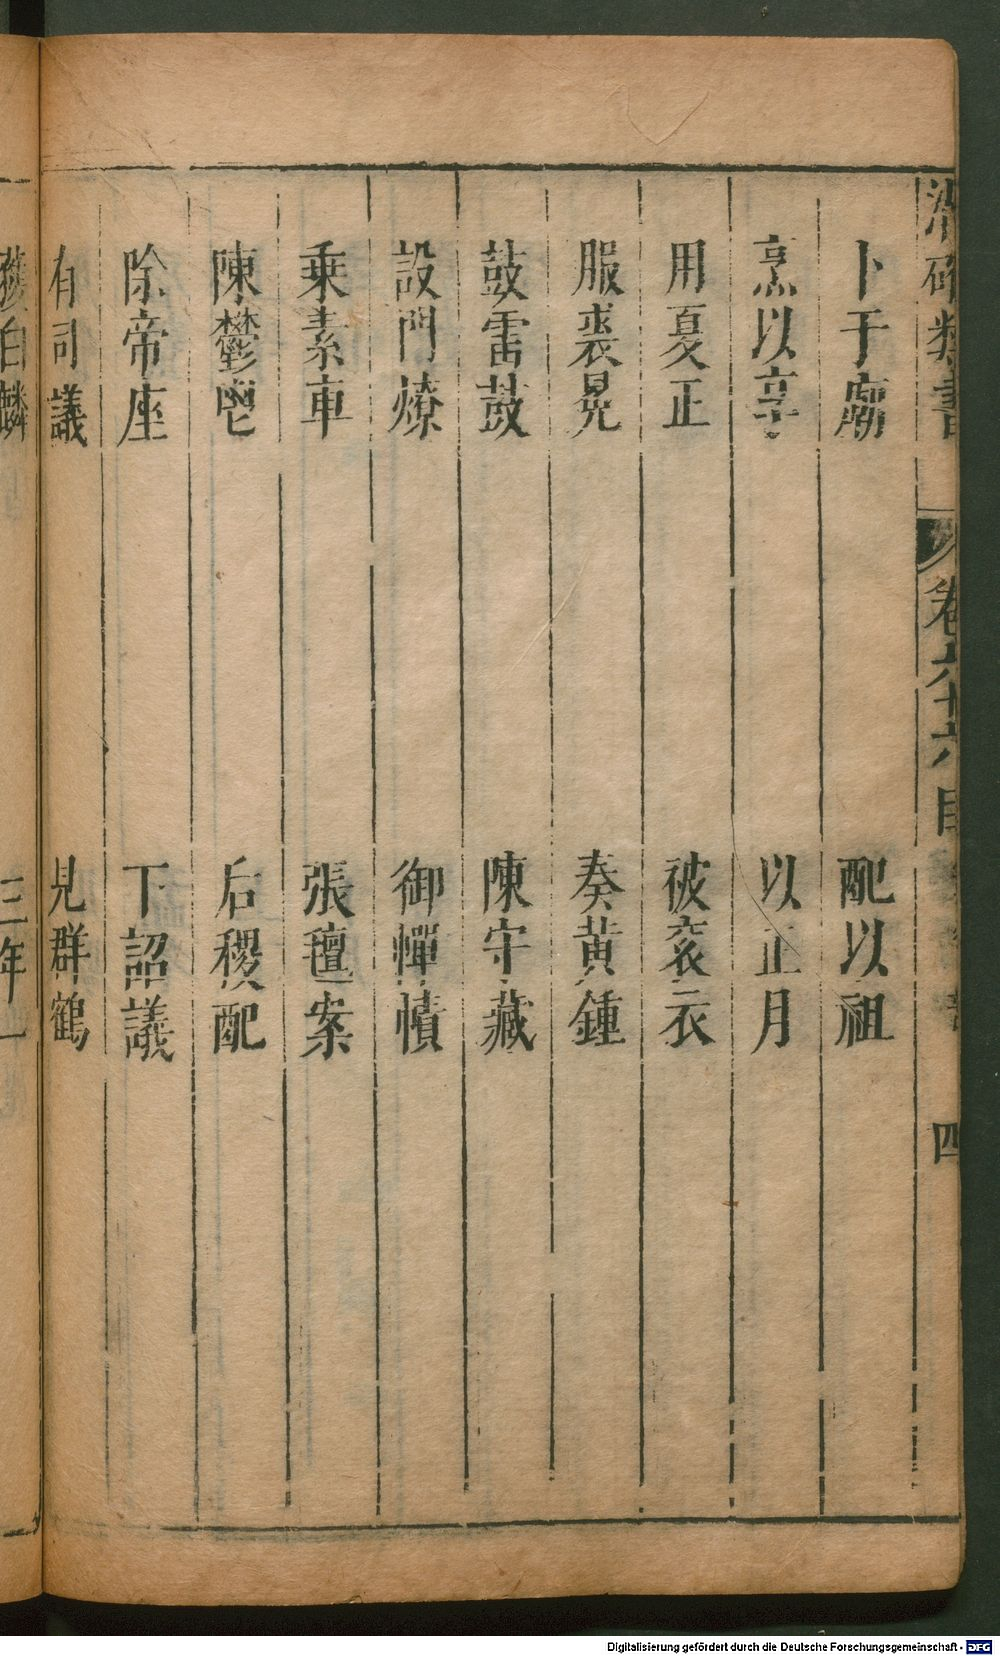 卷六十六目
四
卜于廟　配以祖
烹以享　以正月
用夏正　被衮衣
服裘冕　奏黃鍾
鼓雷鼓　陳守藏
設門燎　御憚幘
乗素車　張氊案
陳鬱鬯　后稷配
除帝座　下詔議
有司議　見群鶴
獲白麟　三年一
Digitalisierung gefördert durch die Deutsche Forschungsgemeinschaft - DFG